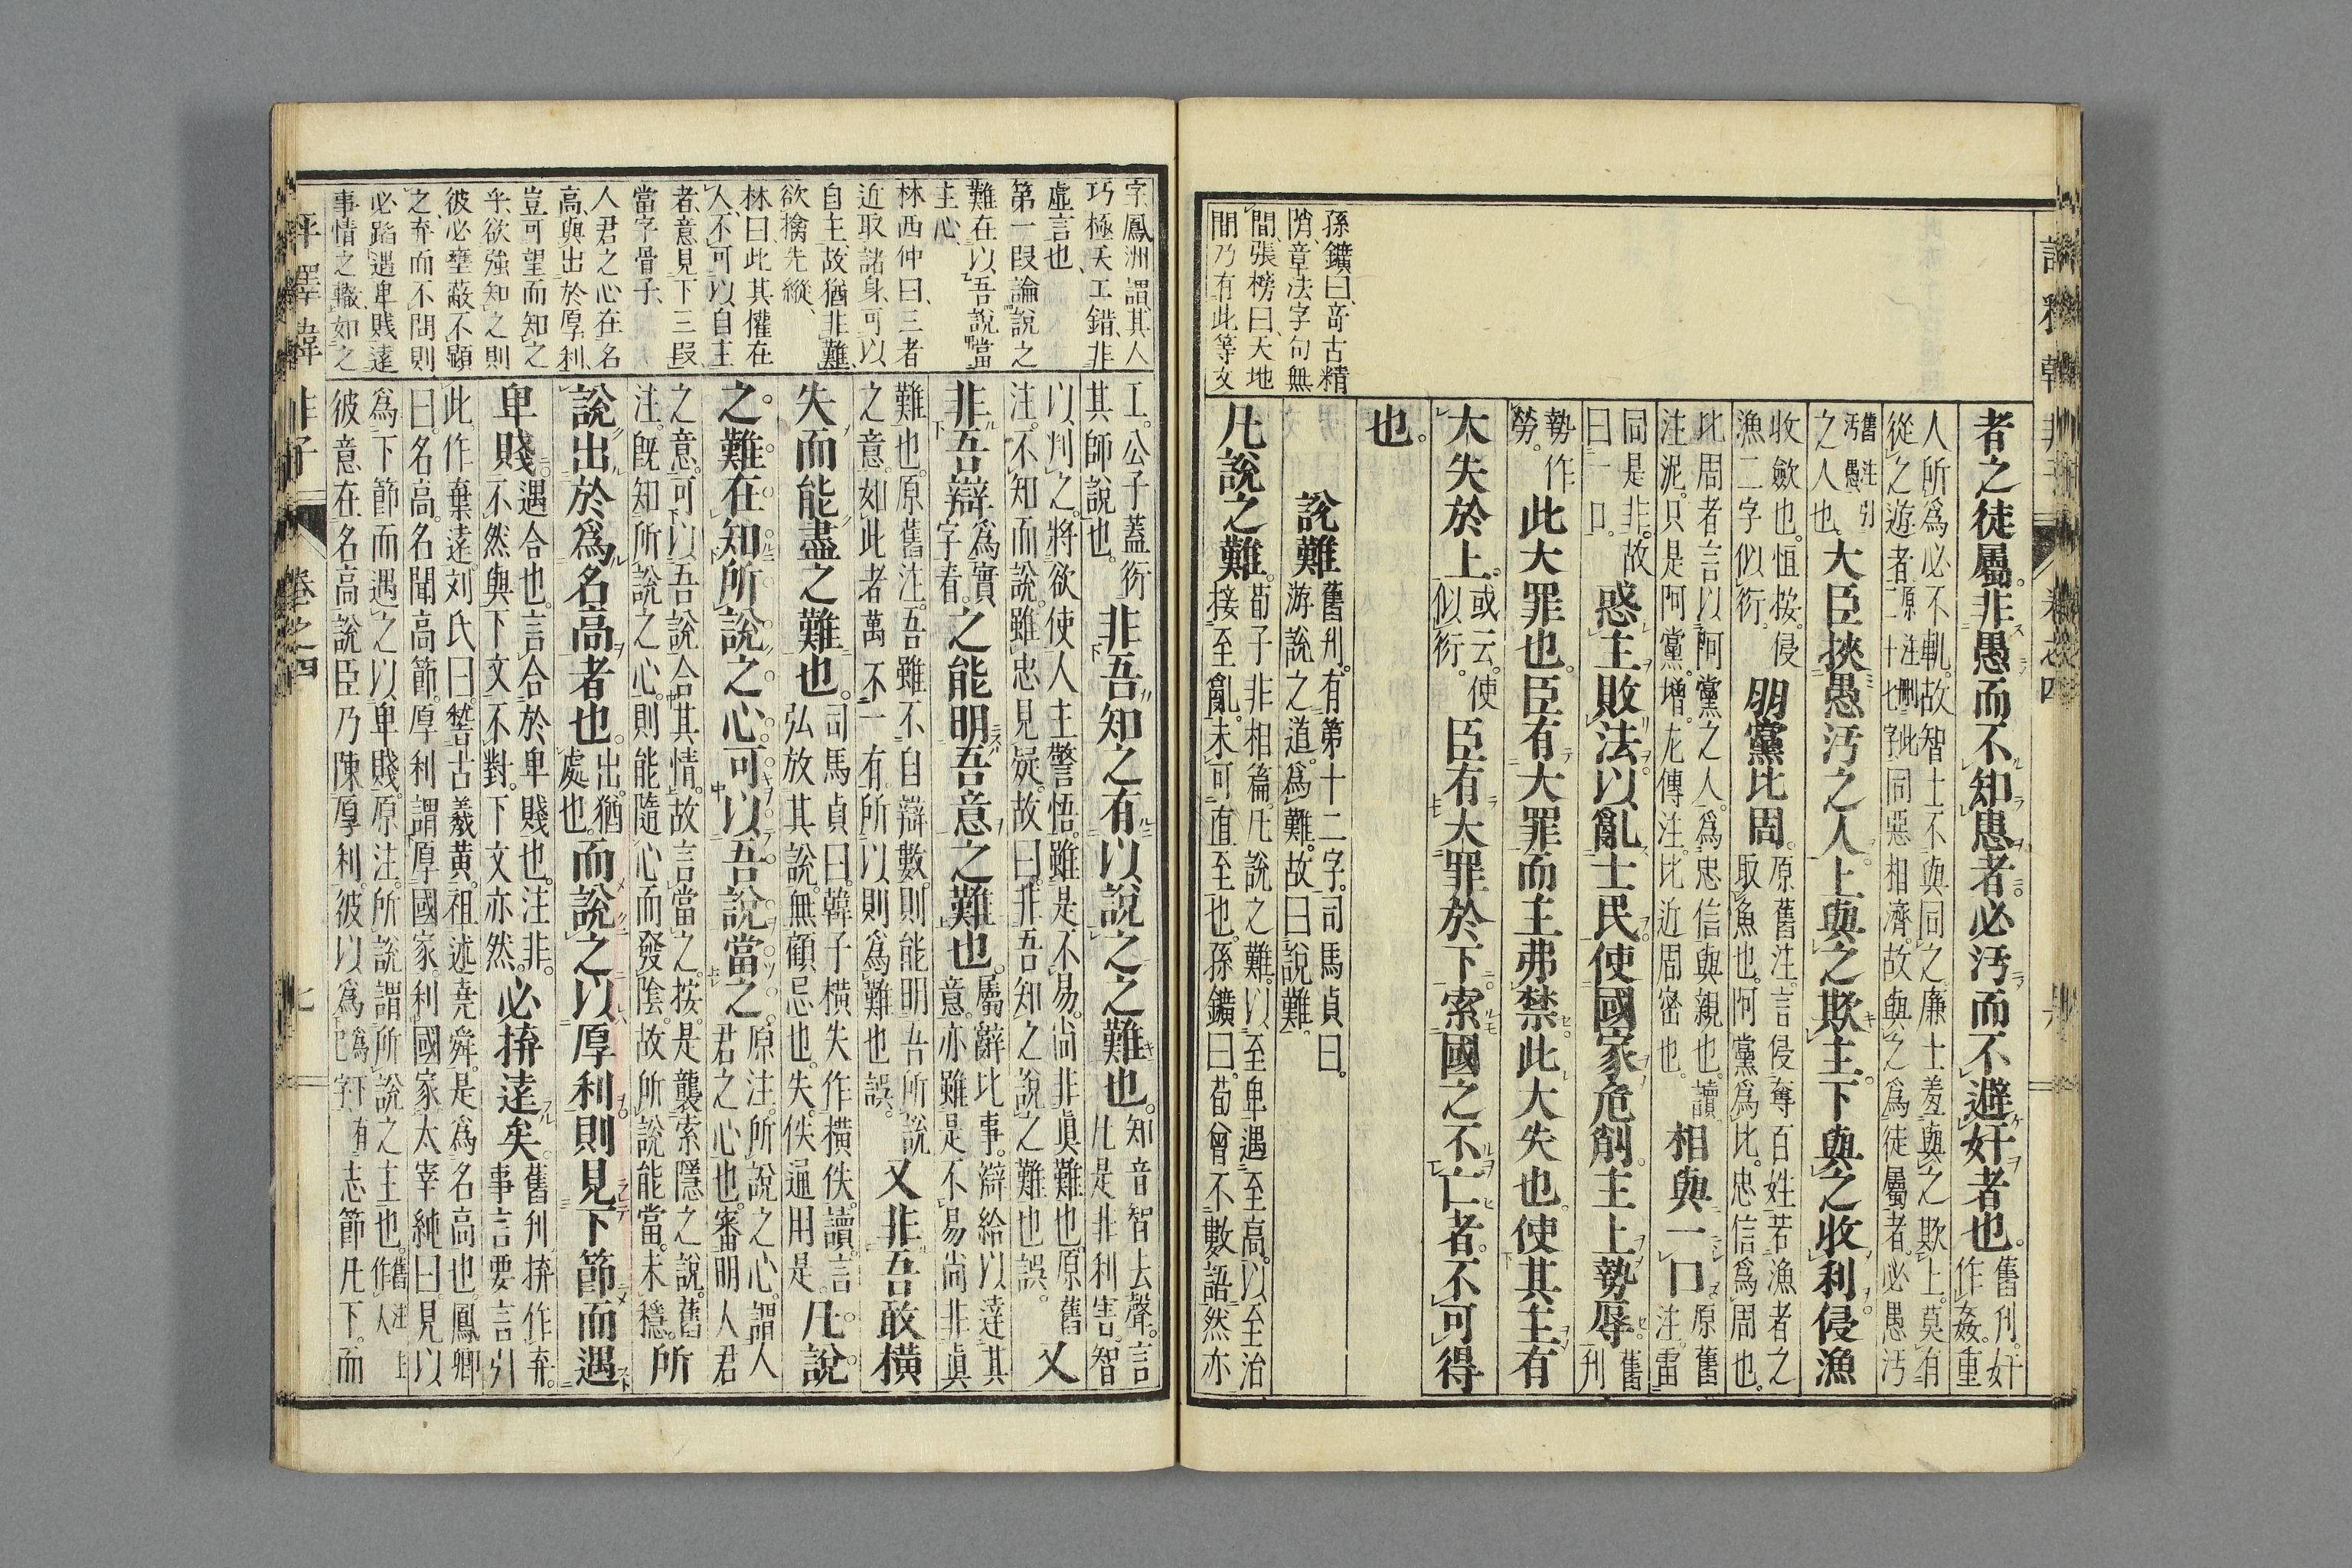 孫鑛曰奇古精
悄章法字句無
間張榜曰天地
間乃有此等文
者之徒屬。非愚而不知患者。必汚而不避奸者也。舊刋。奸
作姦。重
人所爲必不軌。故智士不與同之。廉士羞與之欺上。莫有
從之遊者原注刪此二十七字同惡相濟。故與之爲徒屬者。必愚汚
之人也舊注引汚愚大臣挾愚汚之人。上與之欺主。下與之收利侵漁
收斂也。恒按。侵
漁二字似衍。朋黨比周。原舊注。言侵奪百姓若漁者之
取魚也。阿黨爲比。忠信爲周也。
比周者言以阿黨之人。爲忠信與親也。讀
注泥。只是阿黨。增。左傳注。比近周密也。相與一口原舊
注。雷
同是非。故
曰一口。惑主敗法。以亂士民。使國家危削。主上勢辱。舊
刋
勢作
勞。此大罪也。臣有大罪而主弗禁。此大失也。使其主有
大失於上。或云。使
似衍。臣有大罪於下。索國之不亡者。不可得
也。
說難舊刋。有第十二字。司馬貞曰。
游說之道。爲難。故曰說難。
凡說之難。荀子非相篇。凡說之難。以至高遇至卑。以至治
接至亂。未可直至也。孫鑛曰。荀曾不數語。然亦
評釋韓非子 卷之四 六
字鳳洲謂其人
巧極天工錯非
虛言也
第一段論說之
難在以吾說當
主心
林西仲曰三者
近取諸身可以
自主故猶非難
欲擒先縱
林曰此其權在
人不可以自主
者意見下三段
當字骨子
人君之心在名
高與出於厚利
豈可望而知之
乎欲強知之則
彼必壅蔽不顯
之弃而不問則
必蹈遇卑賤遠
事情之轍如之
工。公子蓋衍
其師說也。非吾知之有以說之之難也。知音智去聲。言
凡是非利害。智
以判之。將欲使人主警悟。雖是不易。尚非眞難也。原舊
注。不知而說。雖忠見疑。故曰。非吾知之說之難也誤。又
非吾辯爲實
字看。之能明吾意之難也。屬辭比事。辯給以達其
意。亦雖是不易尚非眞
難也。原舊注。吾雖不自辯數。則能明吾所說
之意。如此者萬不一有。所以則爲難也誤。又非吾敢橫
失而能盡之難也。司馬貞曰。韓子橫失作橫佚。讀。言
弘放其說。無顧忌也。失。佚通用是。凡說
之難。在知所說之心。可以吾說當之。原注。所說之心。謂人
君之心也。審明人君
之意。可以吾說合其情。故言當之。按。是襲索隱之說。舊
注。旣知所說之心。則能隨心而發陰。故所說能當。未穩。所
說出於爲名高者也。出。猶
處也。而說之以厚利。則見下節而遇
卑賤。遇合也。言合於卑賤也。注非。
不然與下文不對。下文亦然。必弃遠矣。舊刋弃作弃。
事言要言引
此。作棄遠。刘氏曰。稽古羲黄。祖述堯舜。是爲名高也。鳳卿
曰。名高。名聞高節。厚利謂厚國家。利國家。太宰純曰。見以
爲下節而遇之以卑賤。原注。所說謂所說之主也。舊注主作人
彼意在名高。說臣乃陳厚利。彼以爲己下有爲字志節凡下。而
評釋韓非子 卷之四 七